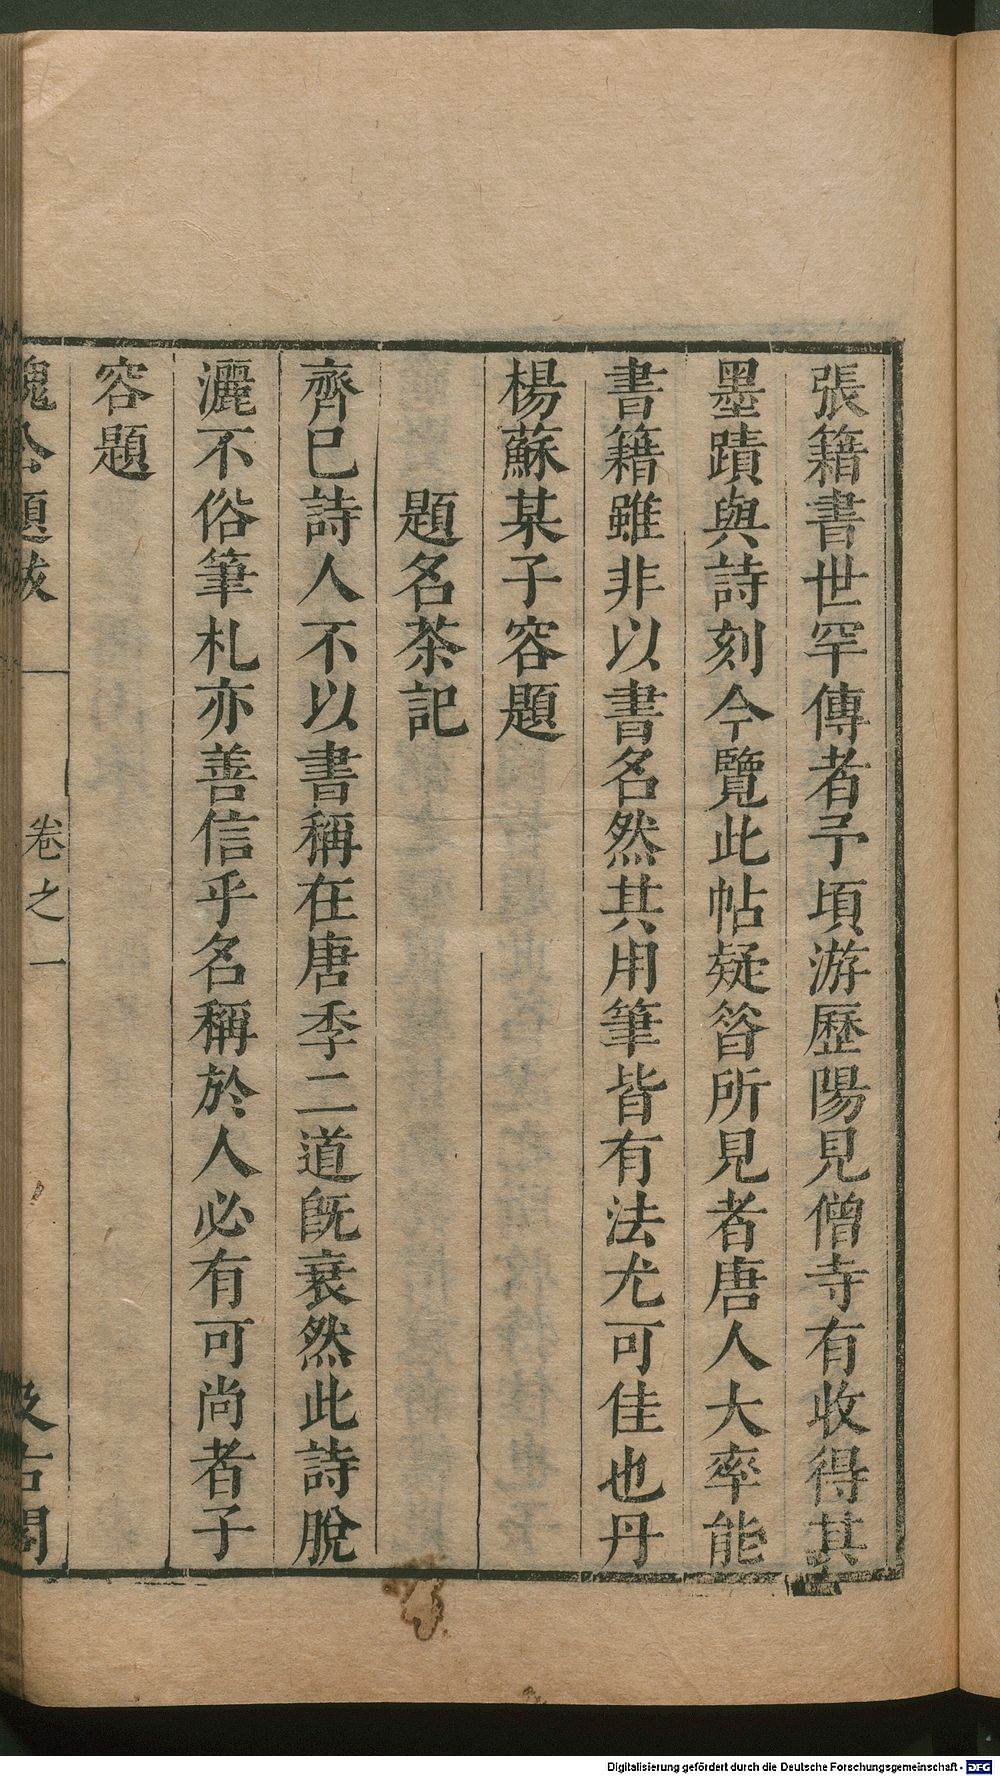 張籍書世罕傳者予頃游歷陽見僧寺有收得其
墨蹟與詩刻今覽此帖疑昝所見者唐人大率能
書籍雖非以書名然其用筆皆有法尤可佳也丹
楊蘇某子容題
題名茶記
齊巳詩人不以書稱在唐季二道旣衰然此詩脫
灑不俗筆札亦善信乎名稱於人必有可尚者子
容題
魏公題跋
卷之一
汲古閣
Digitalisierung gefördert durch die Deutsche Forschungsgemeinschaft - DFG